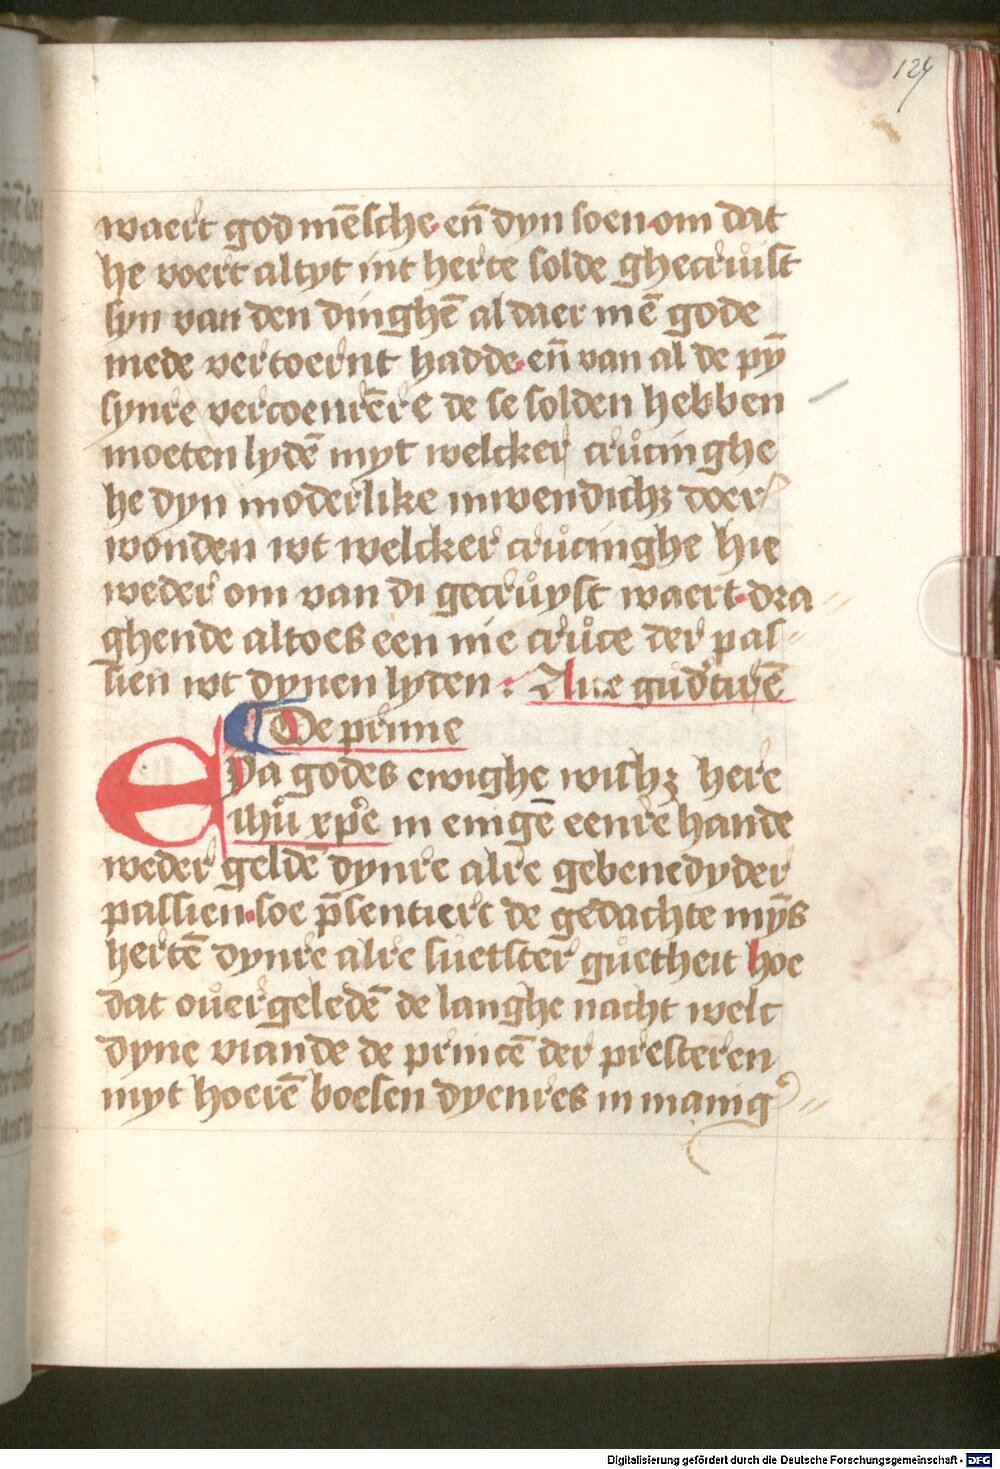 124
waert god mēsche· en̄ dyn soen·om dat
he voert altyt int herte solde ghecruist
syn van den dinghē al daer mē gode
mede vertoernt hadde· en̄ van al de pȳ
synre vercoenrēre de se solden hebben
moeten lydē myt welcker crůcinghe
he dyn moderlike inwendichꝫ doer
wonden wt welcker crůcinghe hie
weder om van di gecrůyst waert· dra〃
ghende altoes een nie crůce der pas〃
sien wt dynen lyden : Aue
De prime
Eya godes ewighe wishꝫ here
ihū xpē in enigē eenre hande
weder geldē dynre alre gebenedyder
passien·soe p̄sentiert de gedachte mȳs
hertē dynre alre suetster gůetheit hoe
dat ouergeledē de langhe nacht welt
dyne viande de princē der presteren
myt hoerē boesen dyenres in manig〃
Digitalisierung gefördert durch die Deutsche Forschungsgemeinschaft - DFG